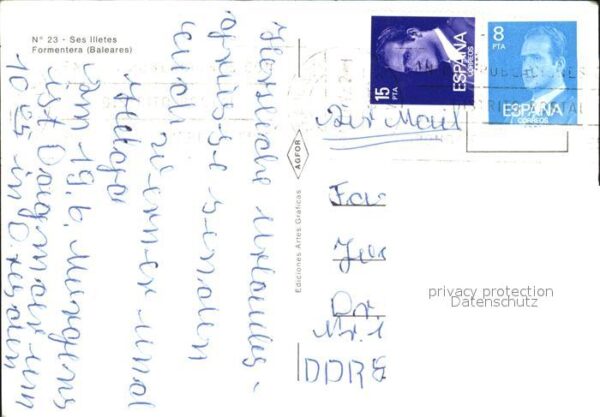 N° 23 - Ses Illetes
Formentera (Baleares)
15
PTA
ESPAÑA
CORREOS
8
PTA
ESPAÑA
CORREOS
Air Mail
Herzliche Urlaubs-
grüsse senden
euch
Werner und
Helga
Am 19.6. Morgens
ist Dagmar um
10 25 in Dresden
AGFOR
Ediciones Artes Gráficas
Fa
Dr.
Nr. 1
DDR 8
privacy protection
Datenschutz